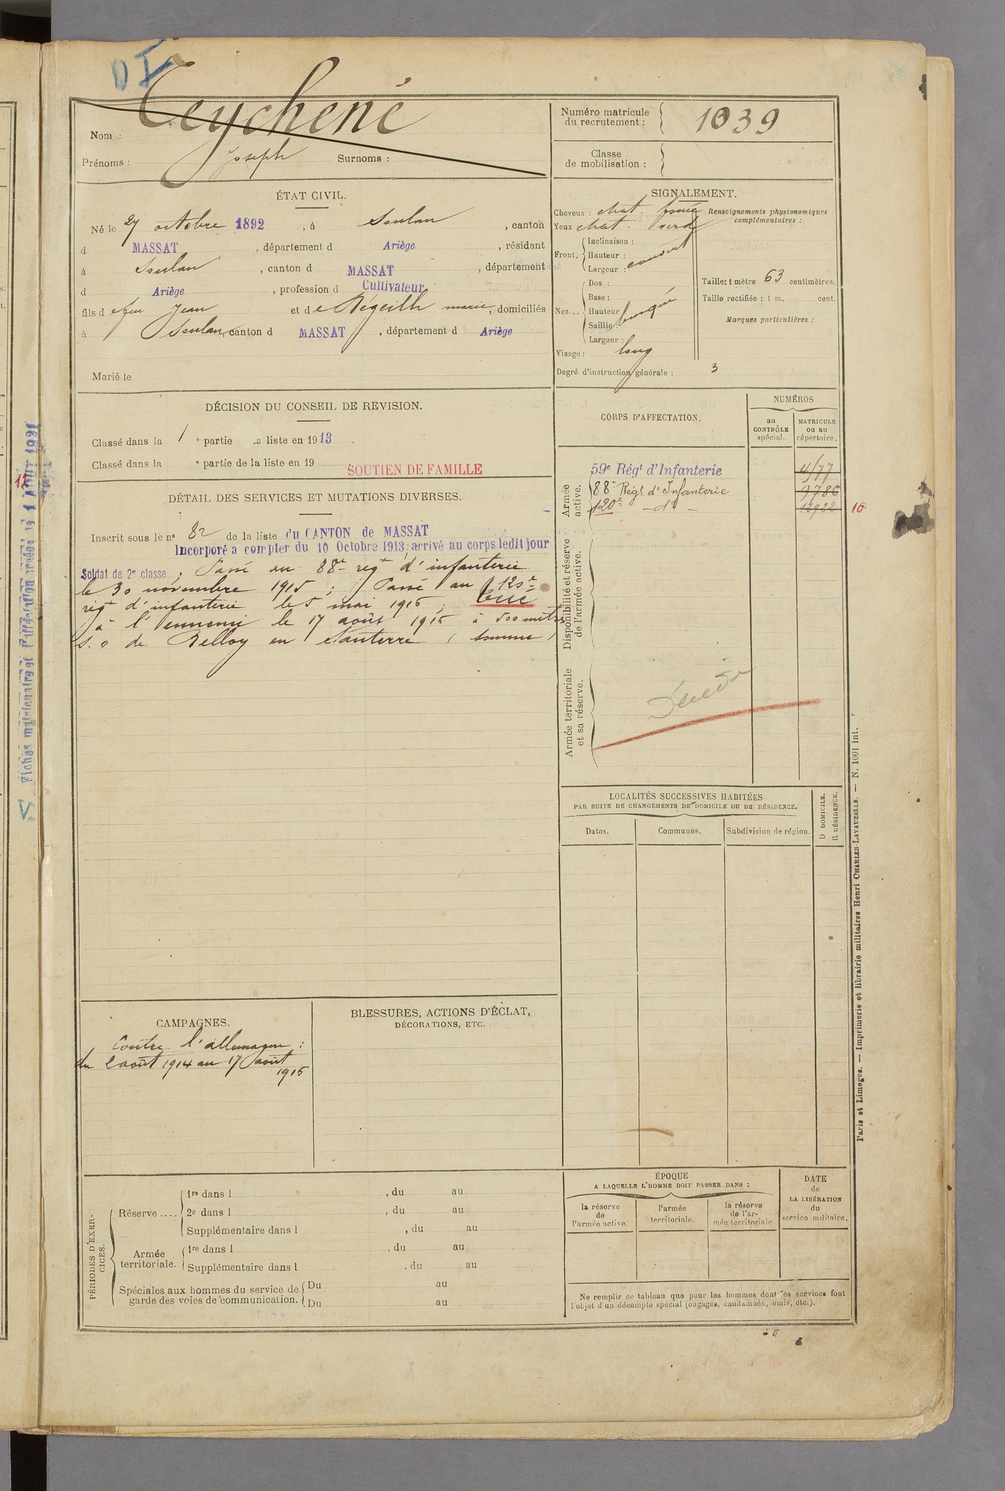 DI
Nom : Teychené
Prénoms : Joseph Surnoms :
Numéro matricule du recrutement : 1039
Classe de mobilisation :
ÉTAT CIVIL.
Né le 27 octobre 1892, à Soulan, canton
d MASSAT, département d Ariège, résidant
à Soulan, canton d MASSAT, département
d Ariège, profession d Cultivateur
fils d e feu Jean et d e Régeilh marie, domiciliés
à Soulan, canton d MASSAT, département d Ariège
Marié le
SIGNALEMENT.
Cheveux : chat. foncé
Yeux chat. verd
Renseignements physionomiques complémentaires :
Front. Inclinaison :
Hauteur :
Largeur : couvert
Nez... Dos :
Base :
Hauteur
Saillie busqué
Largeur :
Visage : long
Degré d'instruction générale : 3
Taille : 1 mètre 63 centimètres.
Taille rectifiée : 1 m. cent.
Marques particulières :
DÉCISION DU CONSEIL DE REVISION.
Classé dans la 1 e partie de la liste en 1913.
Classé dans la e partie de la liste en 19
SOUTIEN DE FAMILLE
CORPS D'AFFECTATION.
NUMÉROS
au CONTRÔLE spécial.
MATRICULE ou au répertoire.
Armée active.
59e Régt d'Infanterie 4177
88e Régt d'Infanterie 9786
120e - do - 16
Disponibilité et réserve de l'armée active.
Armée territoriale et sa réserve.
Décédé
DÉTAIL DES SERVICES ET MUTATIONS DIVERSES.
Inscrit sous le no 82 de la liste du CANTON de MASSAT
Incorporé a compter du 10 Octobre 1913, arrivé au corps ledit jour
Soldat de 2e classe. Passé au 88e regt d'infanterie
le 30 novembre 1915 ; Passé au 120e
regt d'infanterie le 5 mai 1916 ; tué
à l'ennemi le 17 août 1916 à 500 mètres
S. O de Belloy en Santerre (Somme)
Fiches matricule et d'affectation créées le 1 AOUT 1921
LOCALITÉS SUCCESSIVES HABITÉES
PAR SUITE DE CHANGEMENTS DE DOMICILE OU DE RÉSIDENCE.
Dates. Communes. Subdivision de région. D DOMICILE. R RÉSIDENCE.
CAMPAGNES.
Contre l'allemagne :
du 2 août 1914 au 17 août
1916
BLESSURES, ACTIONS D'ÉCLAT,
DÉCORATIONS, ETC.
PÉRIODES D'EXERCICES.
Réserve .... 1re dans l , du au
2e dans l , du au
Supplémentaire dans l , du au
Armée territoriale. 1re dans l , du au
Supplémentaire dans l , du au
Spéciales aux hommes du service de garde des voies de communication. Du au
Du au
ÉPOQUE
A LAQUELLE L'HOMME DOIT PASSER DANS :
la réserve de l'armée active.
l'armée territoriale.
la réserve de l'armée territoriale
DATE de LA LIBÉRATION du service militaire.
Ne remplir ce tableau que pour les hommes dont les services font
l'objet d'un décompte spécial (engagés, condamnés, omis, etc.).
Paris et Limoges. — Imprimerie et librairie militaires Henri CHARLES-LAVAUZELLE. — N. 1001 int.